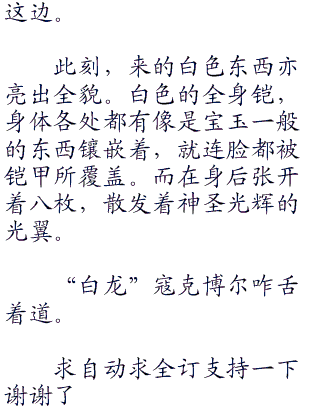 这边。
此刻，来的白色东西亦
亮出全貌。白色的全身铠，
身体各处都有像是宝玉一般
的东西镶嵌着，就连脸都被
铠甲所覆盖。而在身后张开
着八枚，散发着神圣光辉的
光翼。
“白龙”寇克博尔咋舌
着道。
求自动求全订支持一下
谢谢了